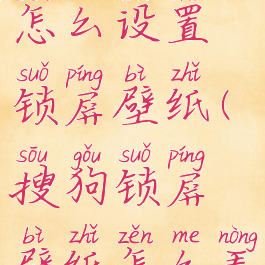 怎么设置
suǒ píng bì zhǐ
锁屏壁纸(
sōu gǒu suǒ píng
搜狗锁屏
bì zhǐ zěn me nòng
壁纸怎么弄